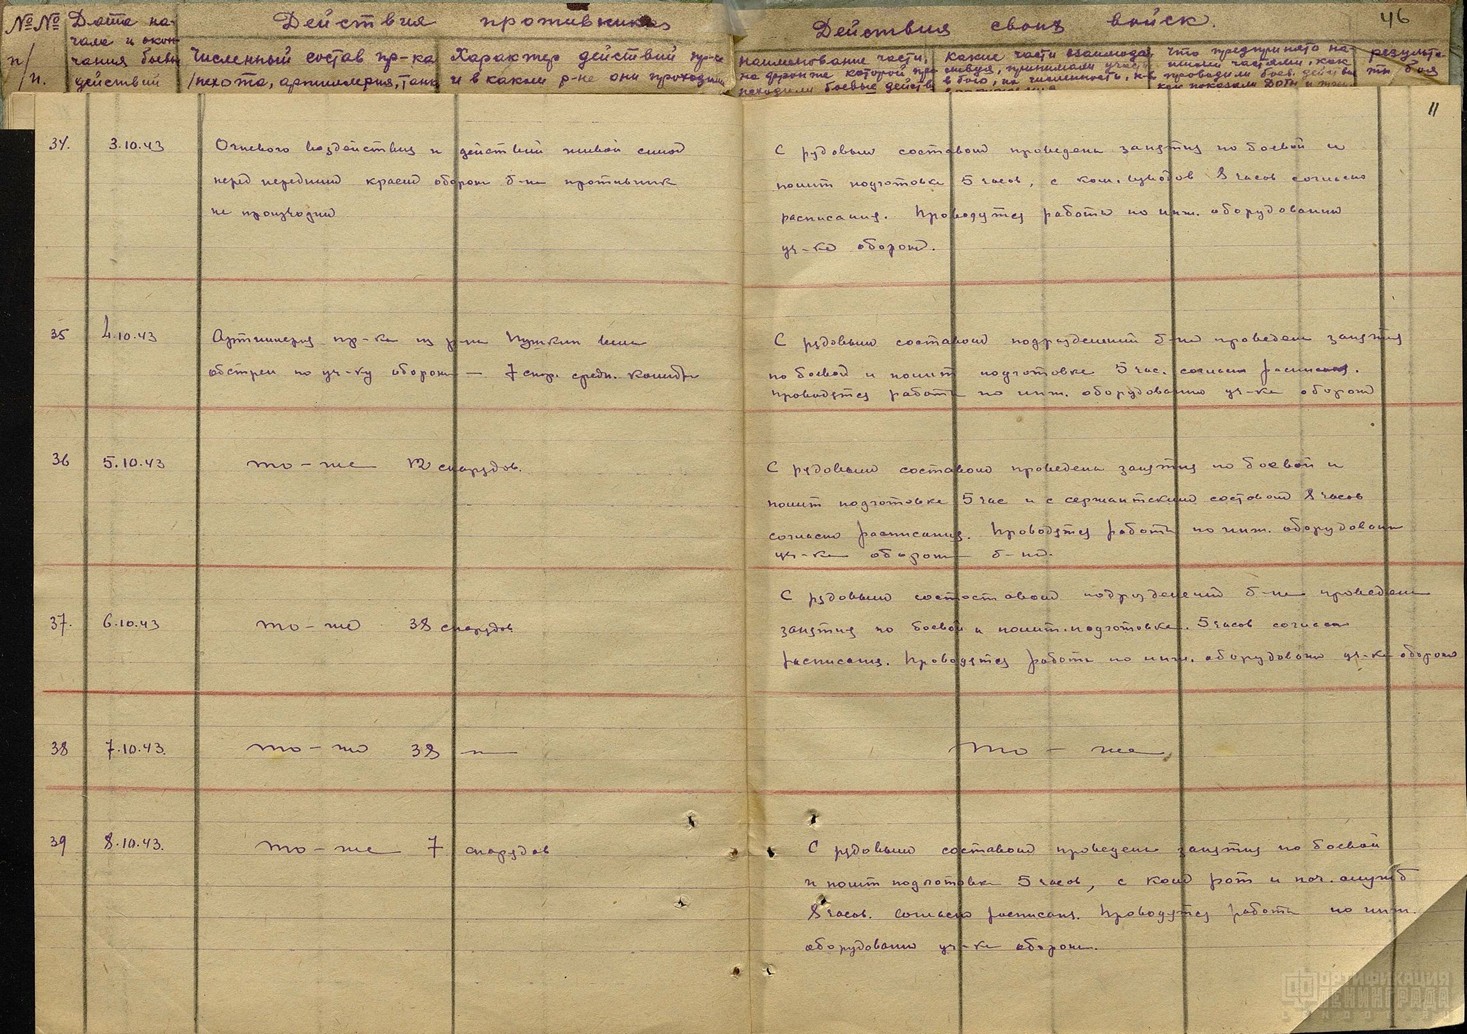 №№ п/п.
Дата начала и окончания боевых действий
Действия противника
Численный состав пр-ка /пехота, артиллерия, танк
Характер действий пр-ка и в каком р-не они проходили
Действия своих войск.
46
наименование части, на фронте которой про
исходили боевые действ
Какие части взаимодей
ствуя, принимали участ
в бою, их численность, и в
Что предпринято на
шими частями, как
проводили боев. действи
как показали Доты и
результа
ты боя
11
34.
3.10.43
Огневого воздействия и действий живой силой
перед передним краем обороны б-на противник
не производил
С рядовым составом проведены занятия по боевой и
полит подготовке 5 часов, с ком. взводов 8 часов согласно
расписания. Проводятся работы по инж. оборудованию
уч-ка обороны.
35
4.10.43
Артиллерия пр-ка из р-на Пушкин вела
обстрел по уч-ку обороны — 7 снар. средн. калибра
С рядовым составом подразделений б-на проведены занятия
по боевой и полит подготовке 5 час. согласно расписания.
Проводятся работы по инж. оборудованию уч-ка обороны
36
5.10.43
то-же 12 снарядов.
С рядовым составом проведены занятия по боевой и
полит подготовке 5 час и с сержантским составом 8 часов
согласно расписания. Проводятся работы по инж. оборудован
уч-ка обороны б-на.
37.
6.10.43
то-же 38 снарядов
С рядовым состоставом подразделений б-на проведены
занятия по боевой и полит. подготовке 5 часов согласно
расписания. Проводятся работы по инж. оборудован уч-ка обороны
38
7.10.43.
то-же 38 —〃—
то-же
39
8.10.43.
то-же 7 снарядов
С рядовым составом проведены занятия по боевой
и полит подготовке 5 часов, с ком рот и нач. служб
8 часов. согласно расписан. Проводятся работы по инж.
оборудованию уч-ка обороны.
ФОРТИФИКАЦИЯ
ЛЕНИНГРАДА